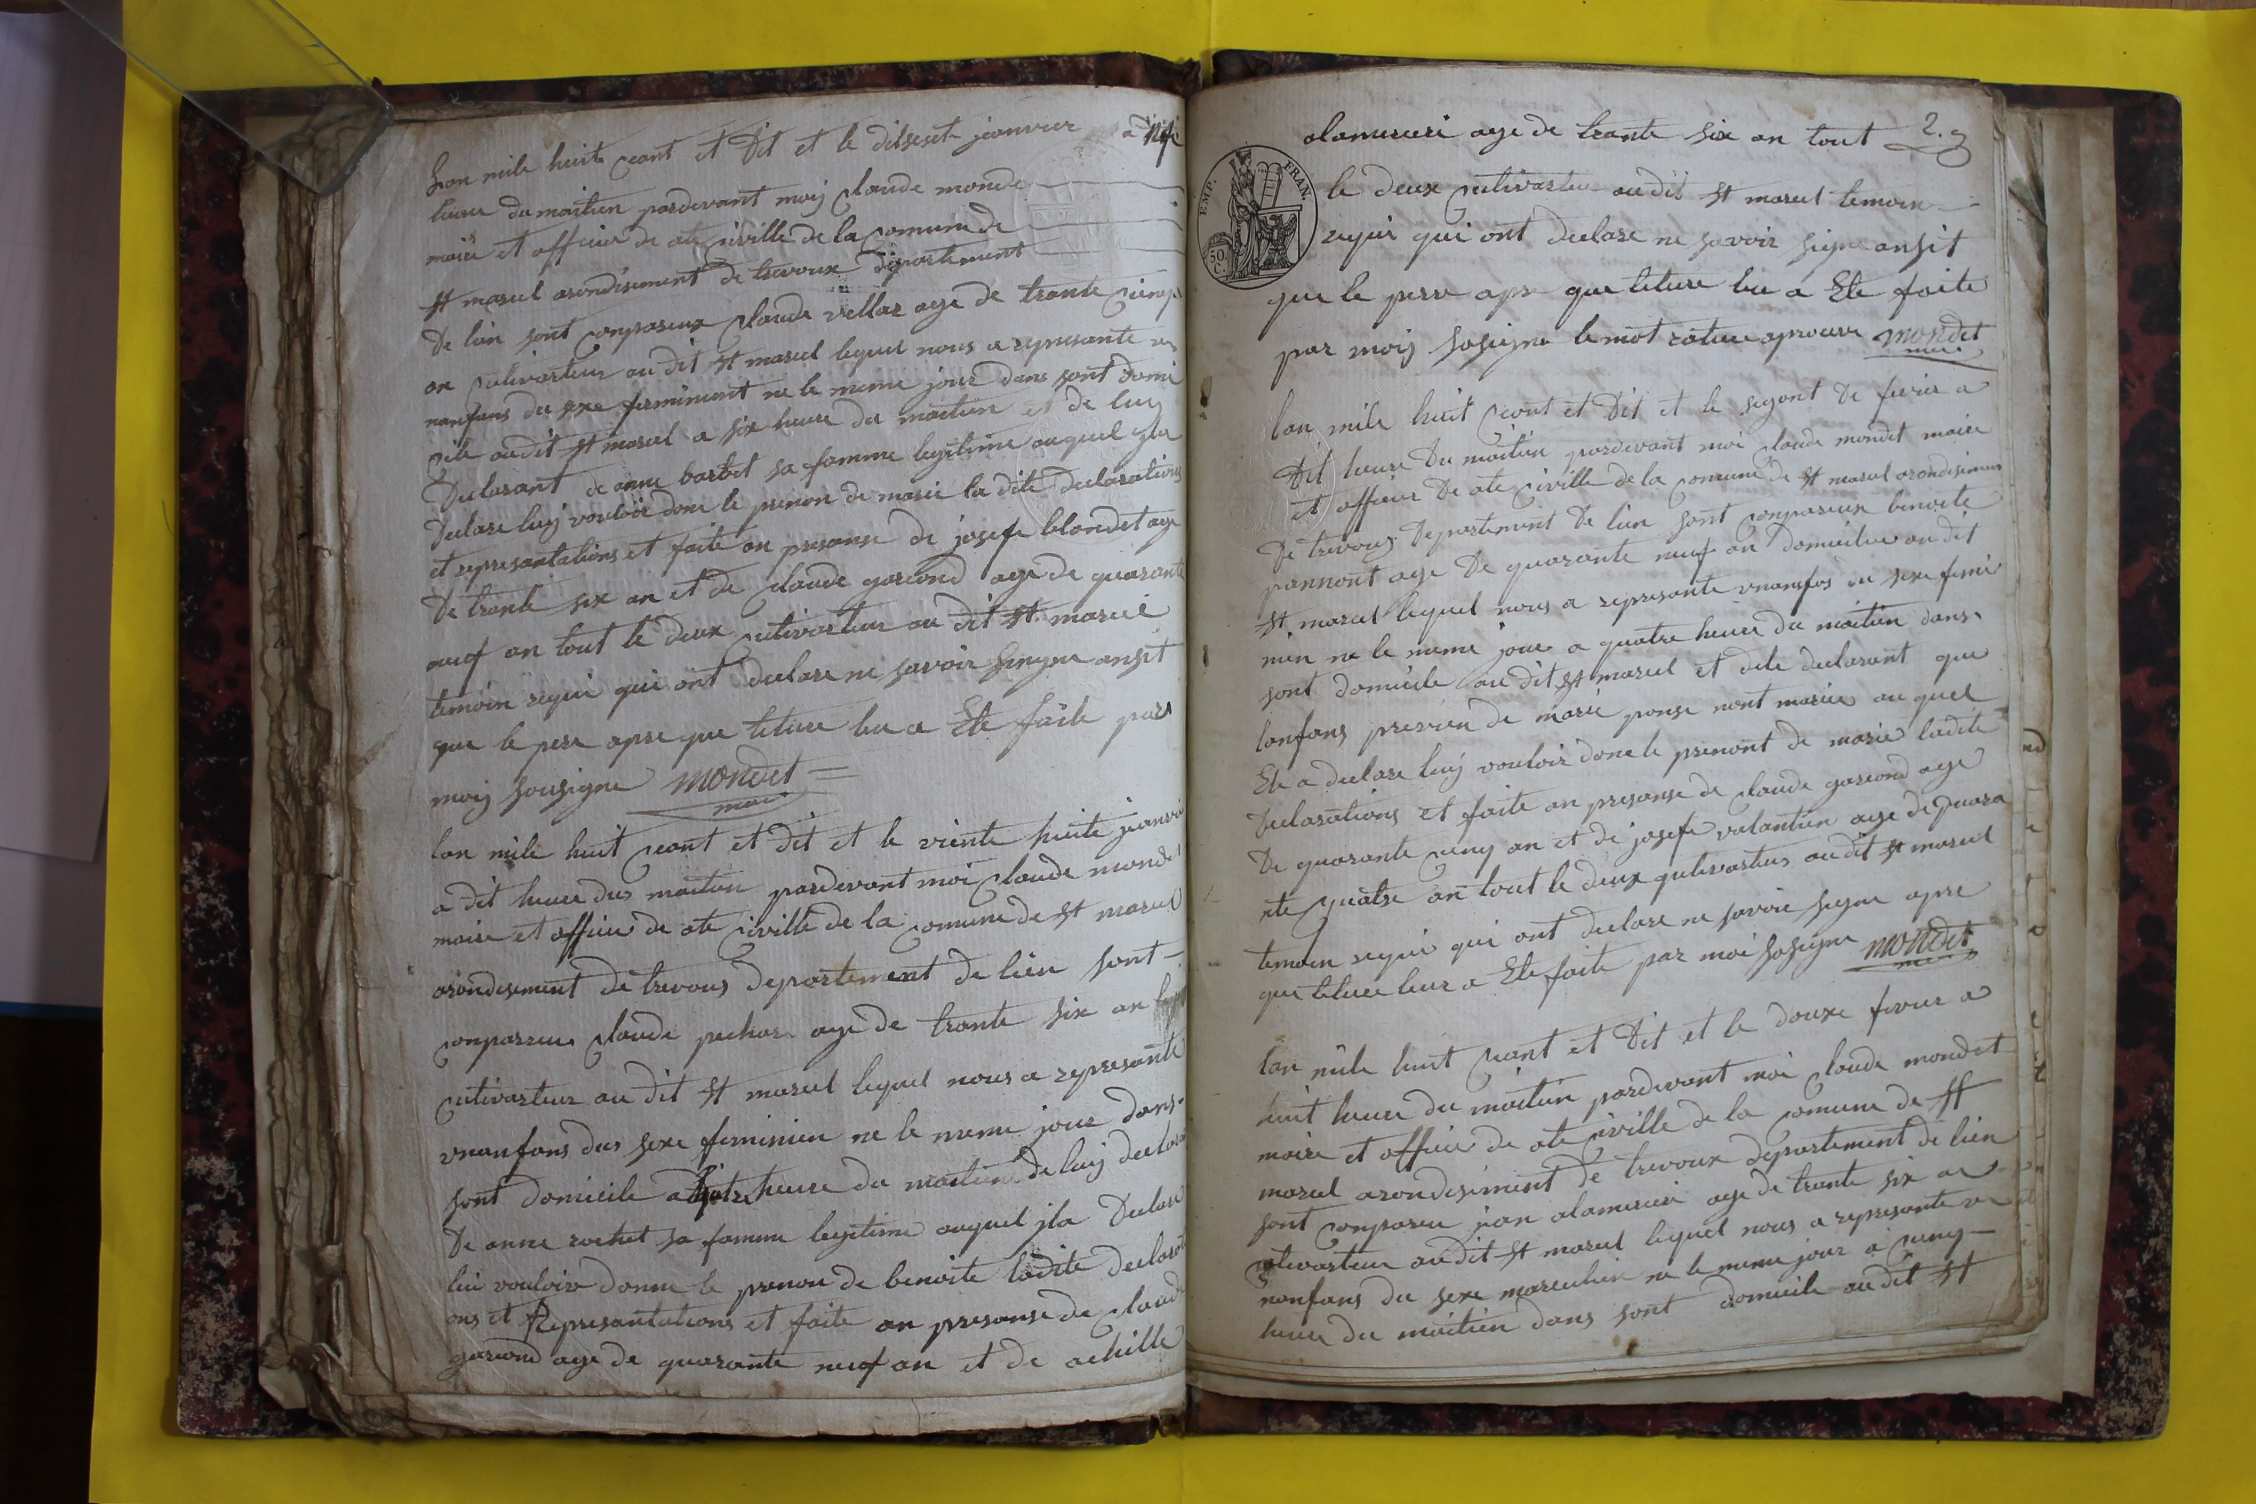 Lan mile huit cant et Dit et le ditseset janvier a
heure du maitien pardevant moij claude monde
maire et officier de ate civille de la comune de
st marcel arondisement de trevoux departement
De lain sont conpareux claude vellar age de trante cienq
an cultivarteur au dit st marcel lequel nous a represante un
nanfans du sexe feminient ne le meme jour dans sont domi
cile audit st marcel a six heure du maitien et de luy
Declarant de anne barbet sa famme legitime auquel jla
Declare luij vouloir done le prenon de marie la dite declarations
et represantations et faite an presanse de josefe blondet age
De trante six an et de claude garcond age de quarante
neuf an tout le deux cultivarteur au dit st marcel
temoin requi qui ont declare ne savoir singne ansit
que le pere apre que leture leu a Ete faite par
moij sousigne mondet
maire
lan mile huit cant et dit et le viente huite janvie
a dit heure dus maitien pardevant moi claude monde
maire et officier de ate civille de la comune de st marcel
arondisement de trevous departement de lien sont
conpareu claude pechar age de trante six an
cultivarteur au dit st marcel lequel nous a represante
vnanfans dus sexe feminien ne le meme jour dans
sont domicile a heure du maitien de luij declaran
De anne rochet sa famme legitime auquel jla Declare
lui vouloir donne le prenon de benoite ladite declarati
ons et Represantations et faite an presanse de claude
garcond age de quarante neuf an et de achille
2.
EMP. FRAN.
50 C.
alamerceri age de trante six an tout
le deux cultivarteur audit st marcel temoin
requi qui ont declare ne savoir signe ansit
que le perre apre que leture leu a Ete faite
par moij sosigne le mot rature aprouve mondet
maire
lan mile huit cant et Dit et le segont de fevrier a
Dit heure Du maitien pardevant moi claude mondet maire
et officier De ate civille de la comune de st marcel arondisimen
De trevoux Departement De lien sont conpareux benoite
pannont age De quarante neuf an domicilie au dit
st marcel lequel nous a represante vnanfos du sexe femi
nien ne le meme jour a quatre heure du maitien dans
sont domicile au dit st marcel et dele declarant que
lanfans previen de marie ponse nont mariee au quel
Ele a declare luij vouloir done le prenont de marie ladite
Declarations et faite an presanse de claude garcond age
De quarante cienq an et de josefe valantien age de quara
nte quatre an tout le deux qultivarteus au dit st marcel
temoien requi qui ont declare ne savoir signe apre
que leture leur a Ete faite par moi sosigne mondet
maire
lan mile huit cant et Dit et le douxe fevrier a
huit heure du maitien pardevant moi claude mondet
maire et officier de ate civille de la comune de st
marcel arondisement de trevoux departement de lien
sont conpareu jean alamercri age de trante six an
cultivarteur au dit st marcel lequel nous a represante vn
nanfans du sexe masculien ne le meme jour a cienq
heure du maitien dans sont domicile au dit st